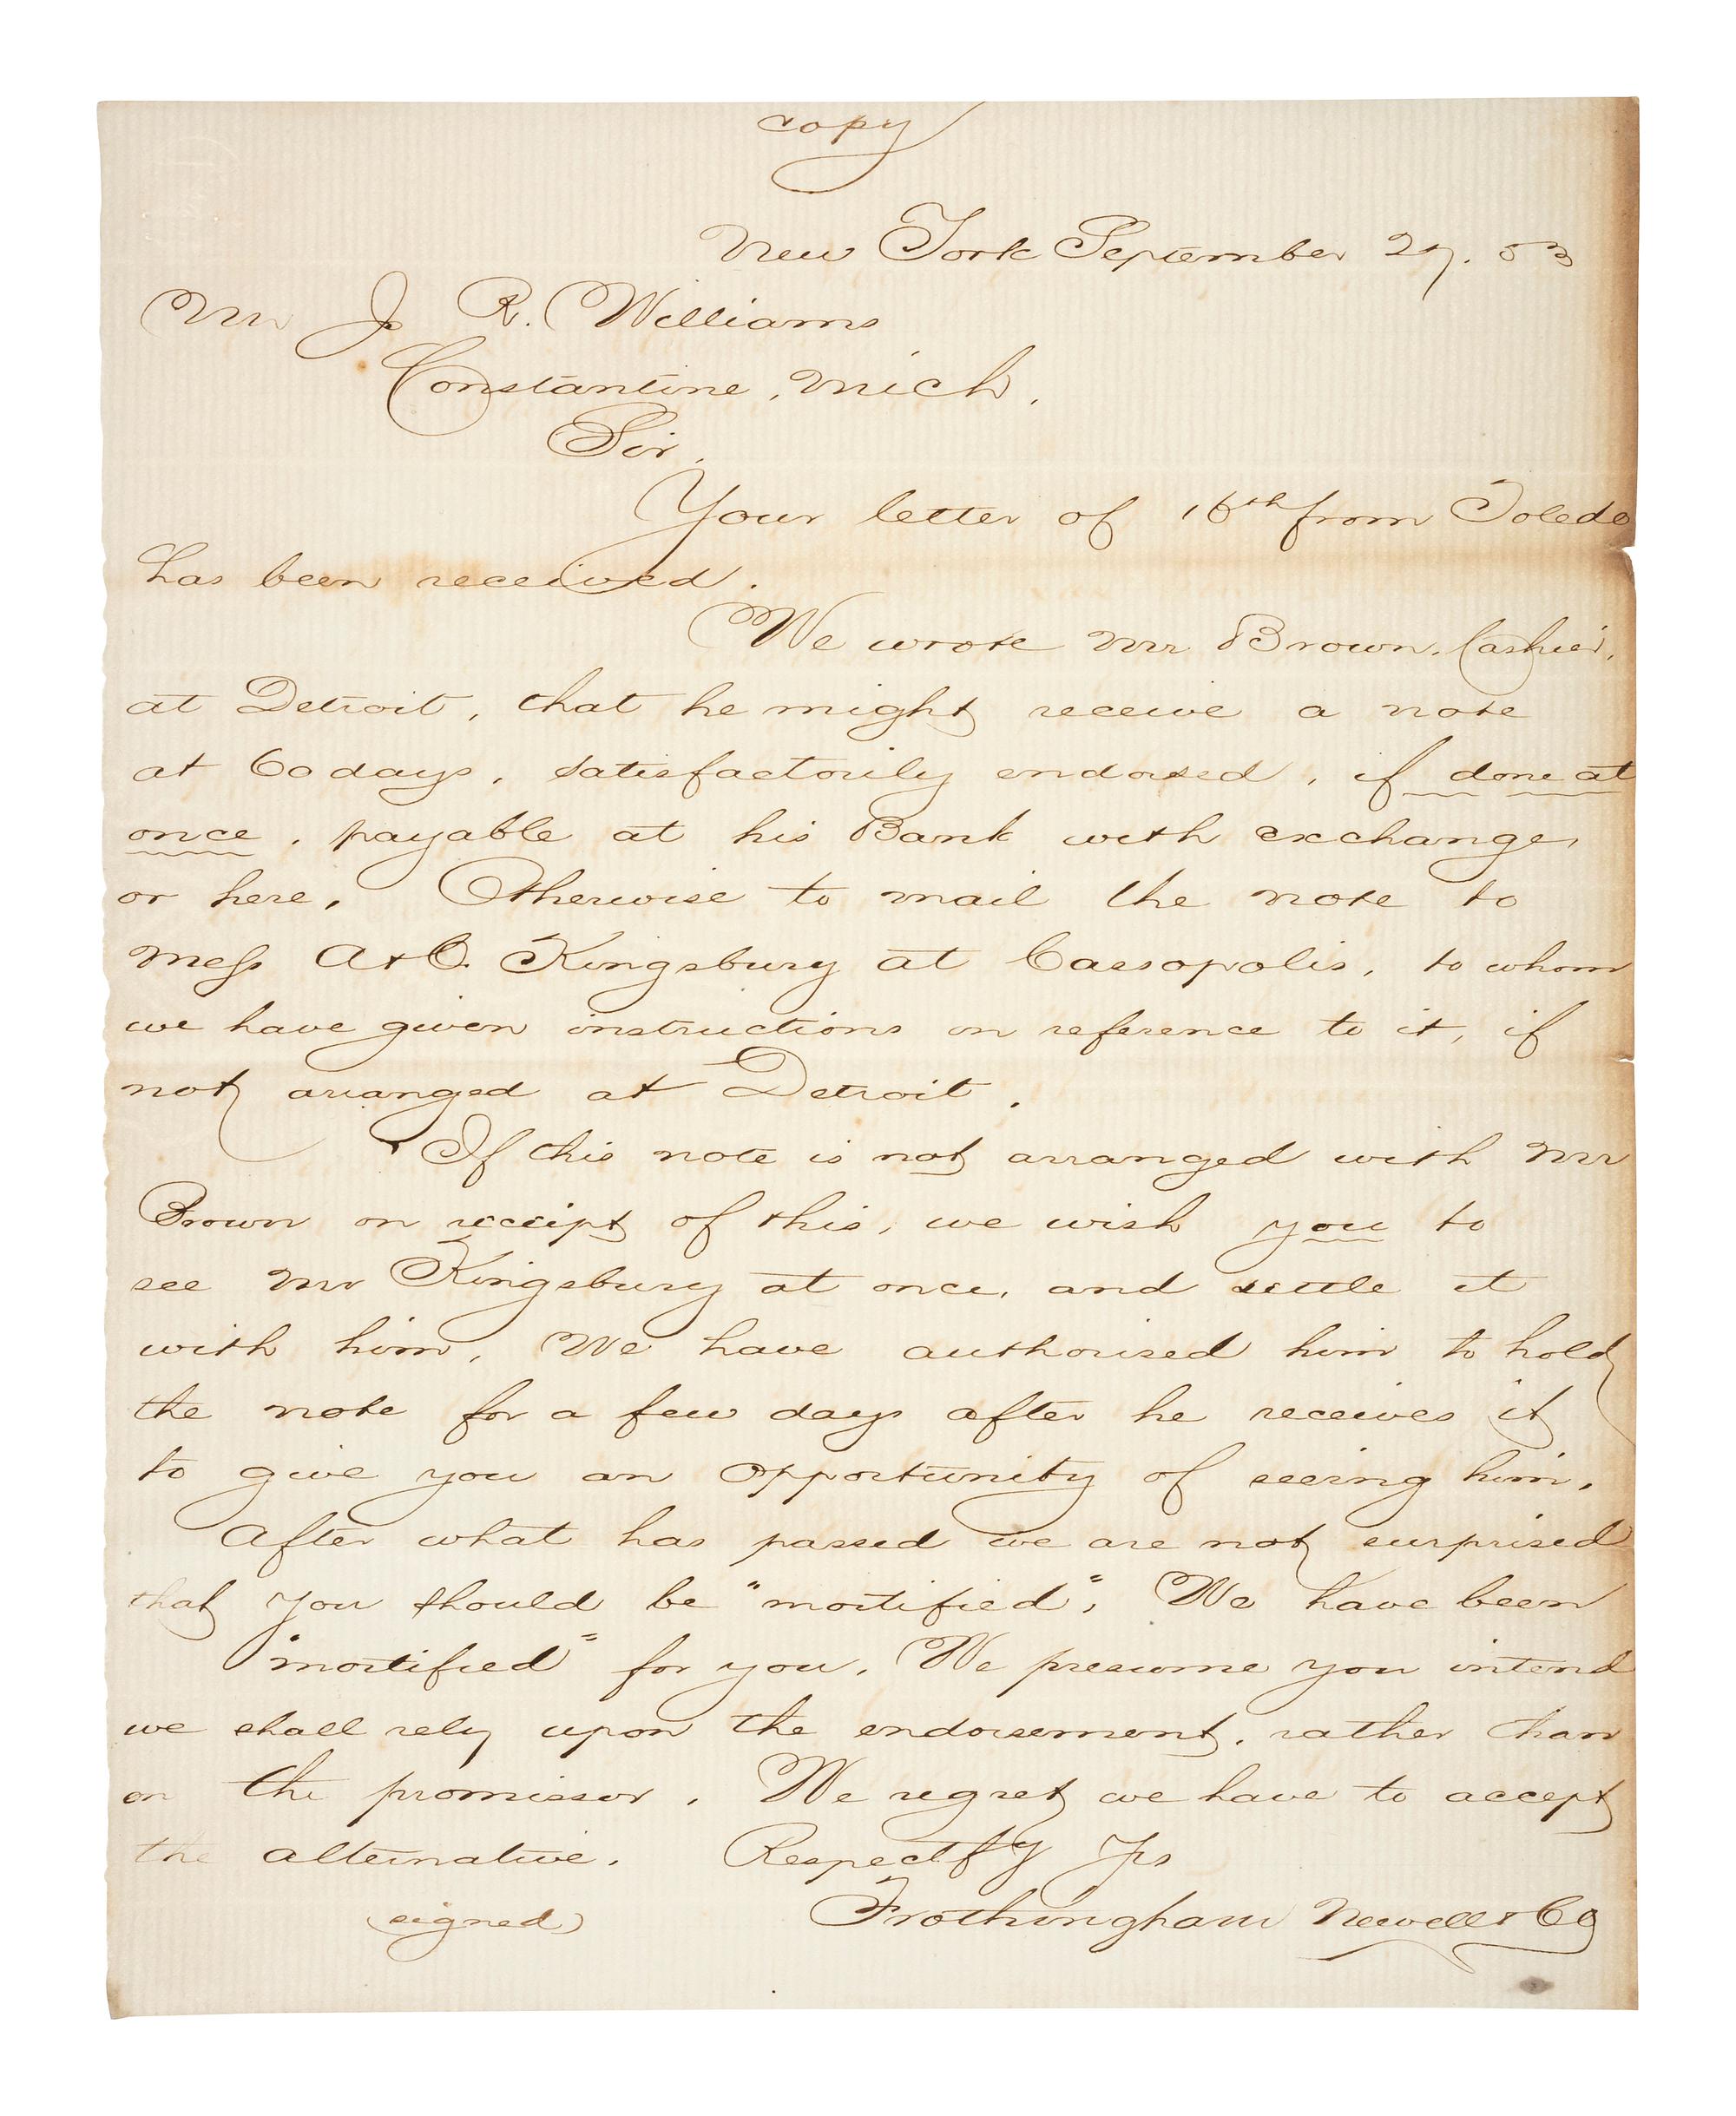 copy
New York September 27. 53
Mr J. R. Williams
Constantine, Mich.
Sir.
Your letter of 16th from Toledo
has been received.
We wrote Mr Brown. Cashier,
at Detroit, that he might receive a note
at 60 days, satisfactorily endorsed, if done at
once, payable at his Bank with exchange
or here. Otherwise to mail the note to
Mess A & C. Kingsbury at Cassopolis, to whom
we have given instructions in reference to it, if
not arranged at Detroit.
If this note is not arranged with Mr
Brown on receipt of this, we wish you to
see Mr Kingsbury at once, and settle it
with him. We have authorised him to hold
the note for a few days after he receives it
to give you an opportunity of seeing him.
After what has passed we are not surprised
that you should be "mortified". We have been
"mortified" for you. We presume you intend
we shall rely upon the endorsement, rather than
on the promissor. We regret we have to accept
the alternative. Respectfy Yrs
(signed) Frothingham Newell & Co